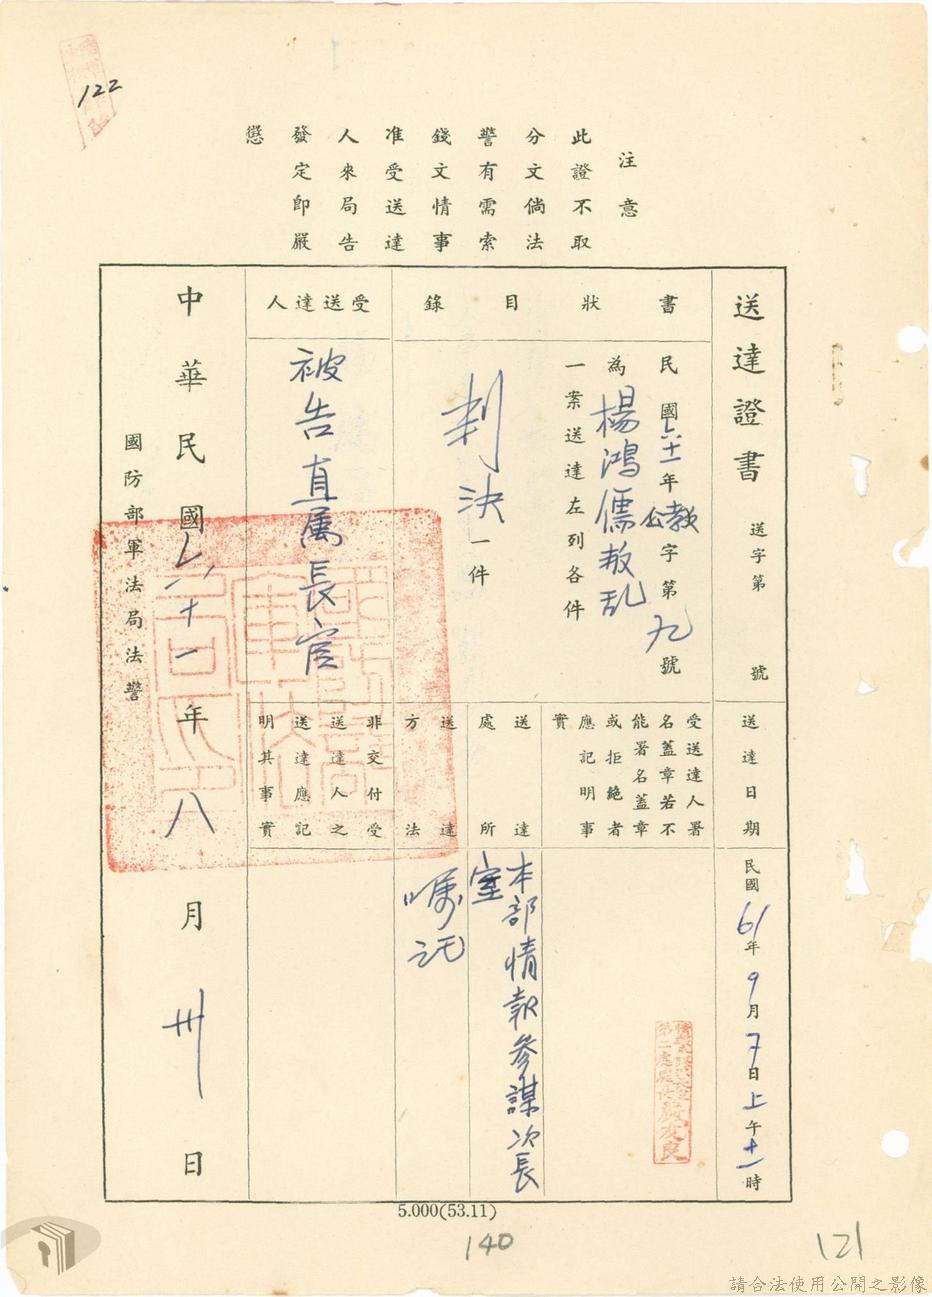 122
注意
此證不取
分文倘法
警有需索
錢文情事
准受送達
人來局告
發定即嚴
懲
送達證書
送字第 號
書狀目錄
民國六十一年公教字第九號
為楊鴻儒叛乱
一案送達左列各件
判決一件
受送達人
被告直属長官
送達日期
民國61年9月7日上午十一時
受送達人署
名蓋章若不
能署名蓋章
或拒絕者
應記明事
實
情報參謀次長室
第二處處長
送達處所
本部情報參謀次長
室
送達方法
嘱託
非交付受
送達人之
送達應記
明其事實
中華民國六十一年八月卅日
國防部軍法局法警
5.000(53.11)
140
121
請合法使用公開之影像